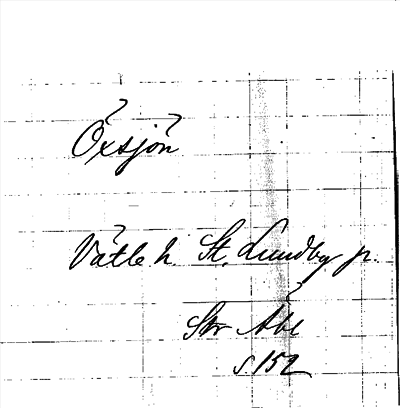 Öxsjön
Vättle h. St. Lundby p.
Str Abl
s 152